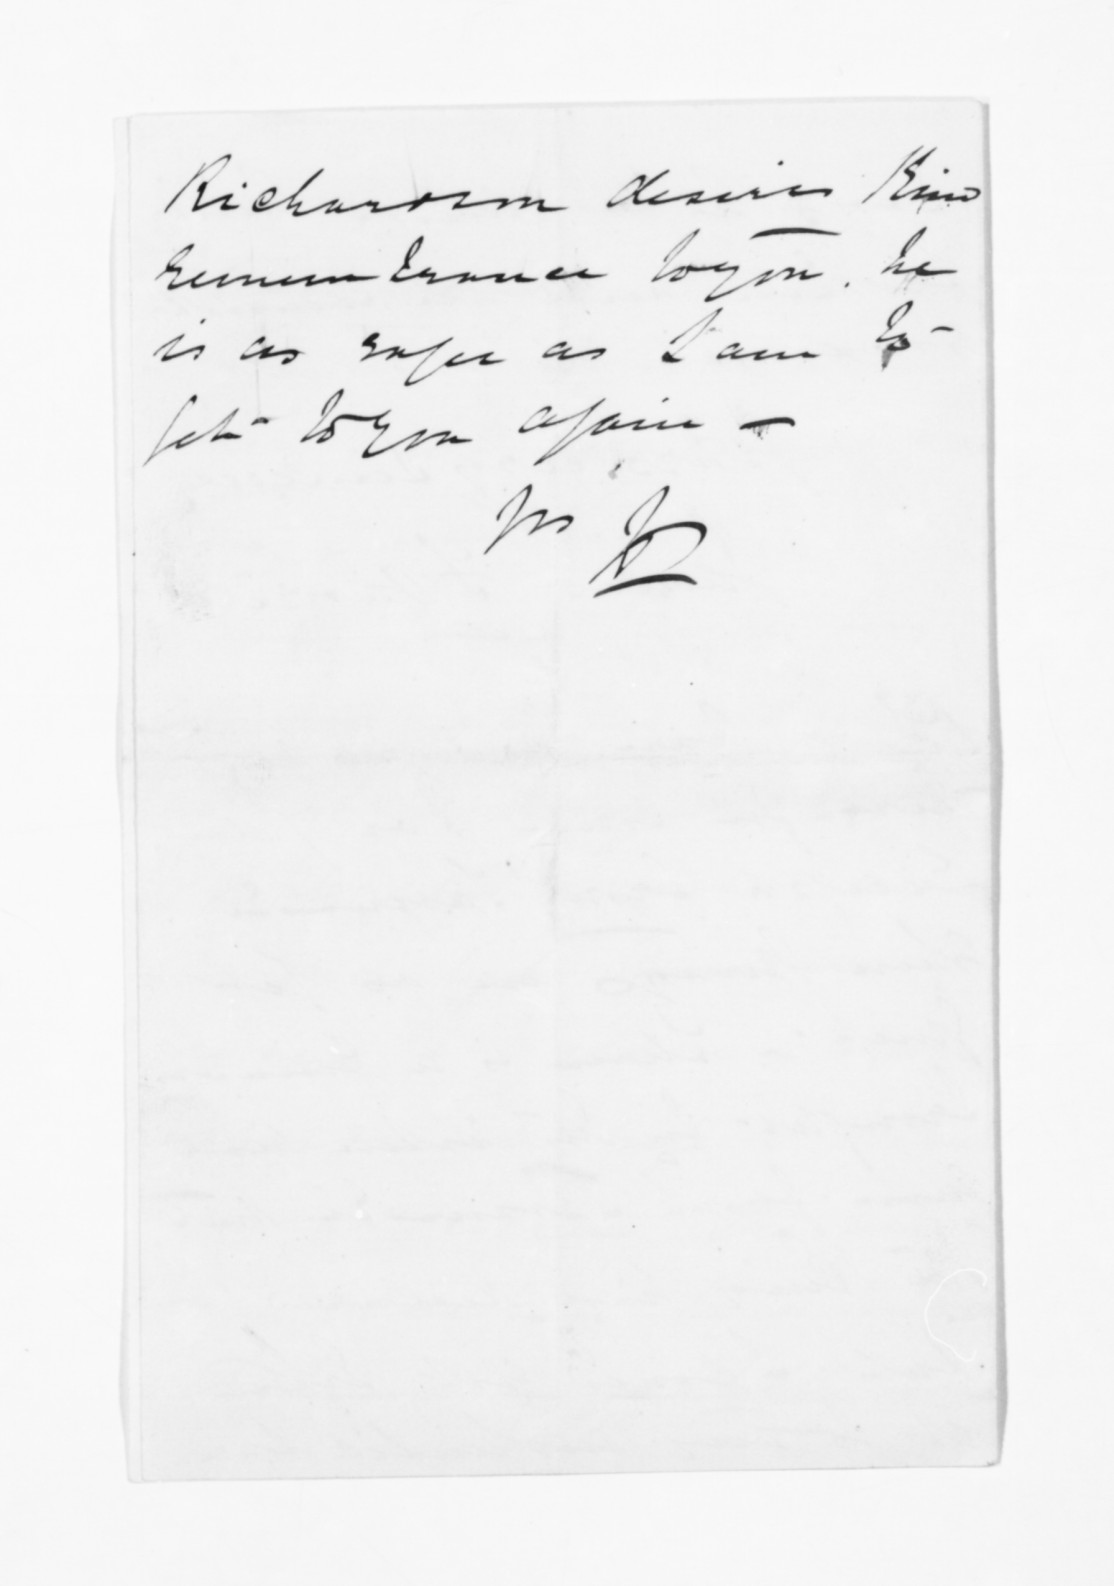 Richardson desires Kind
remembrance to you. he
is as eager as I am to
get to you again —
Yrs